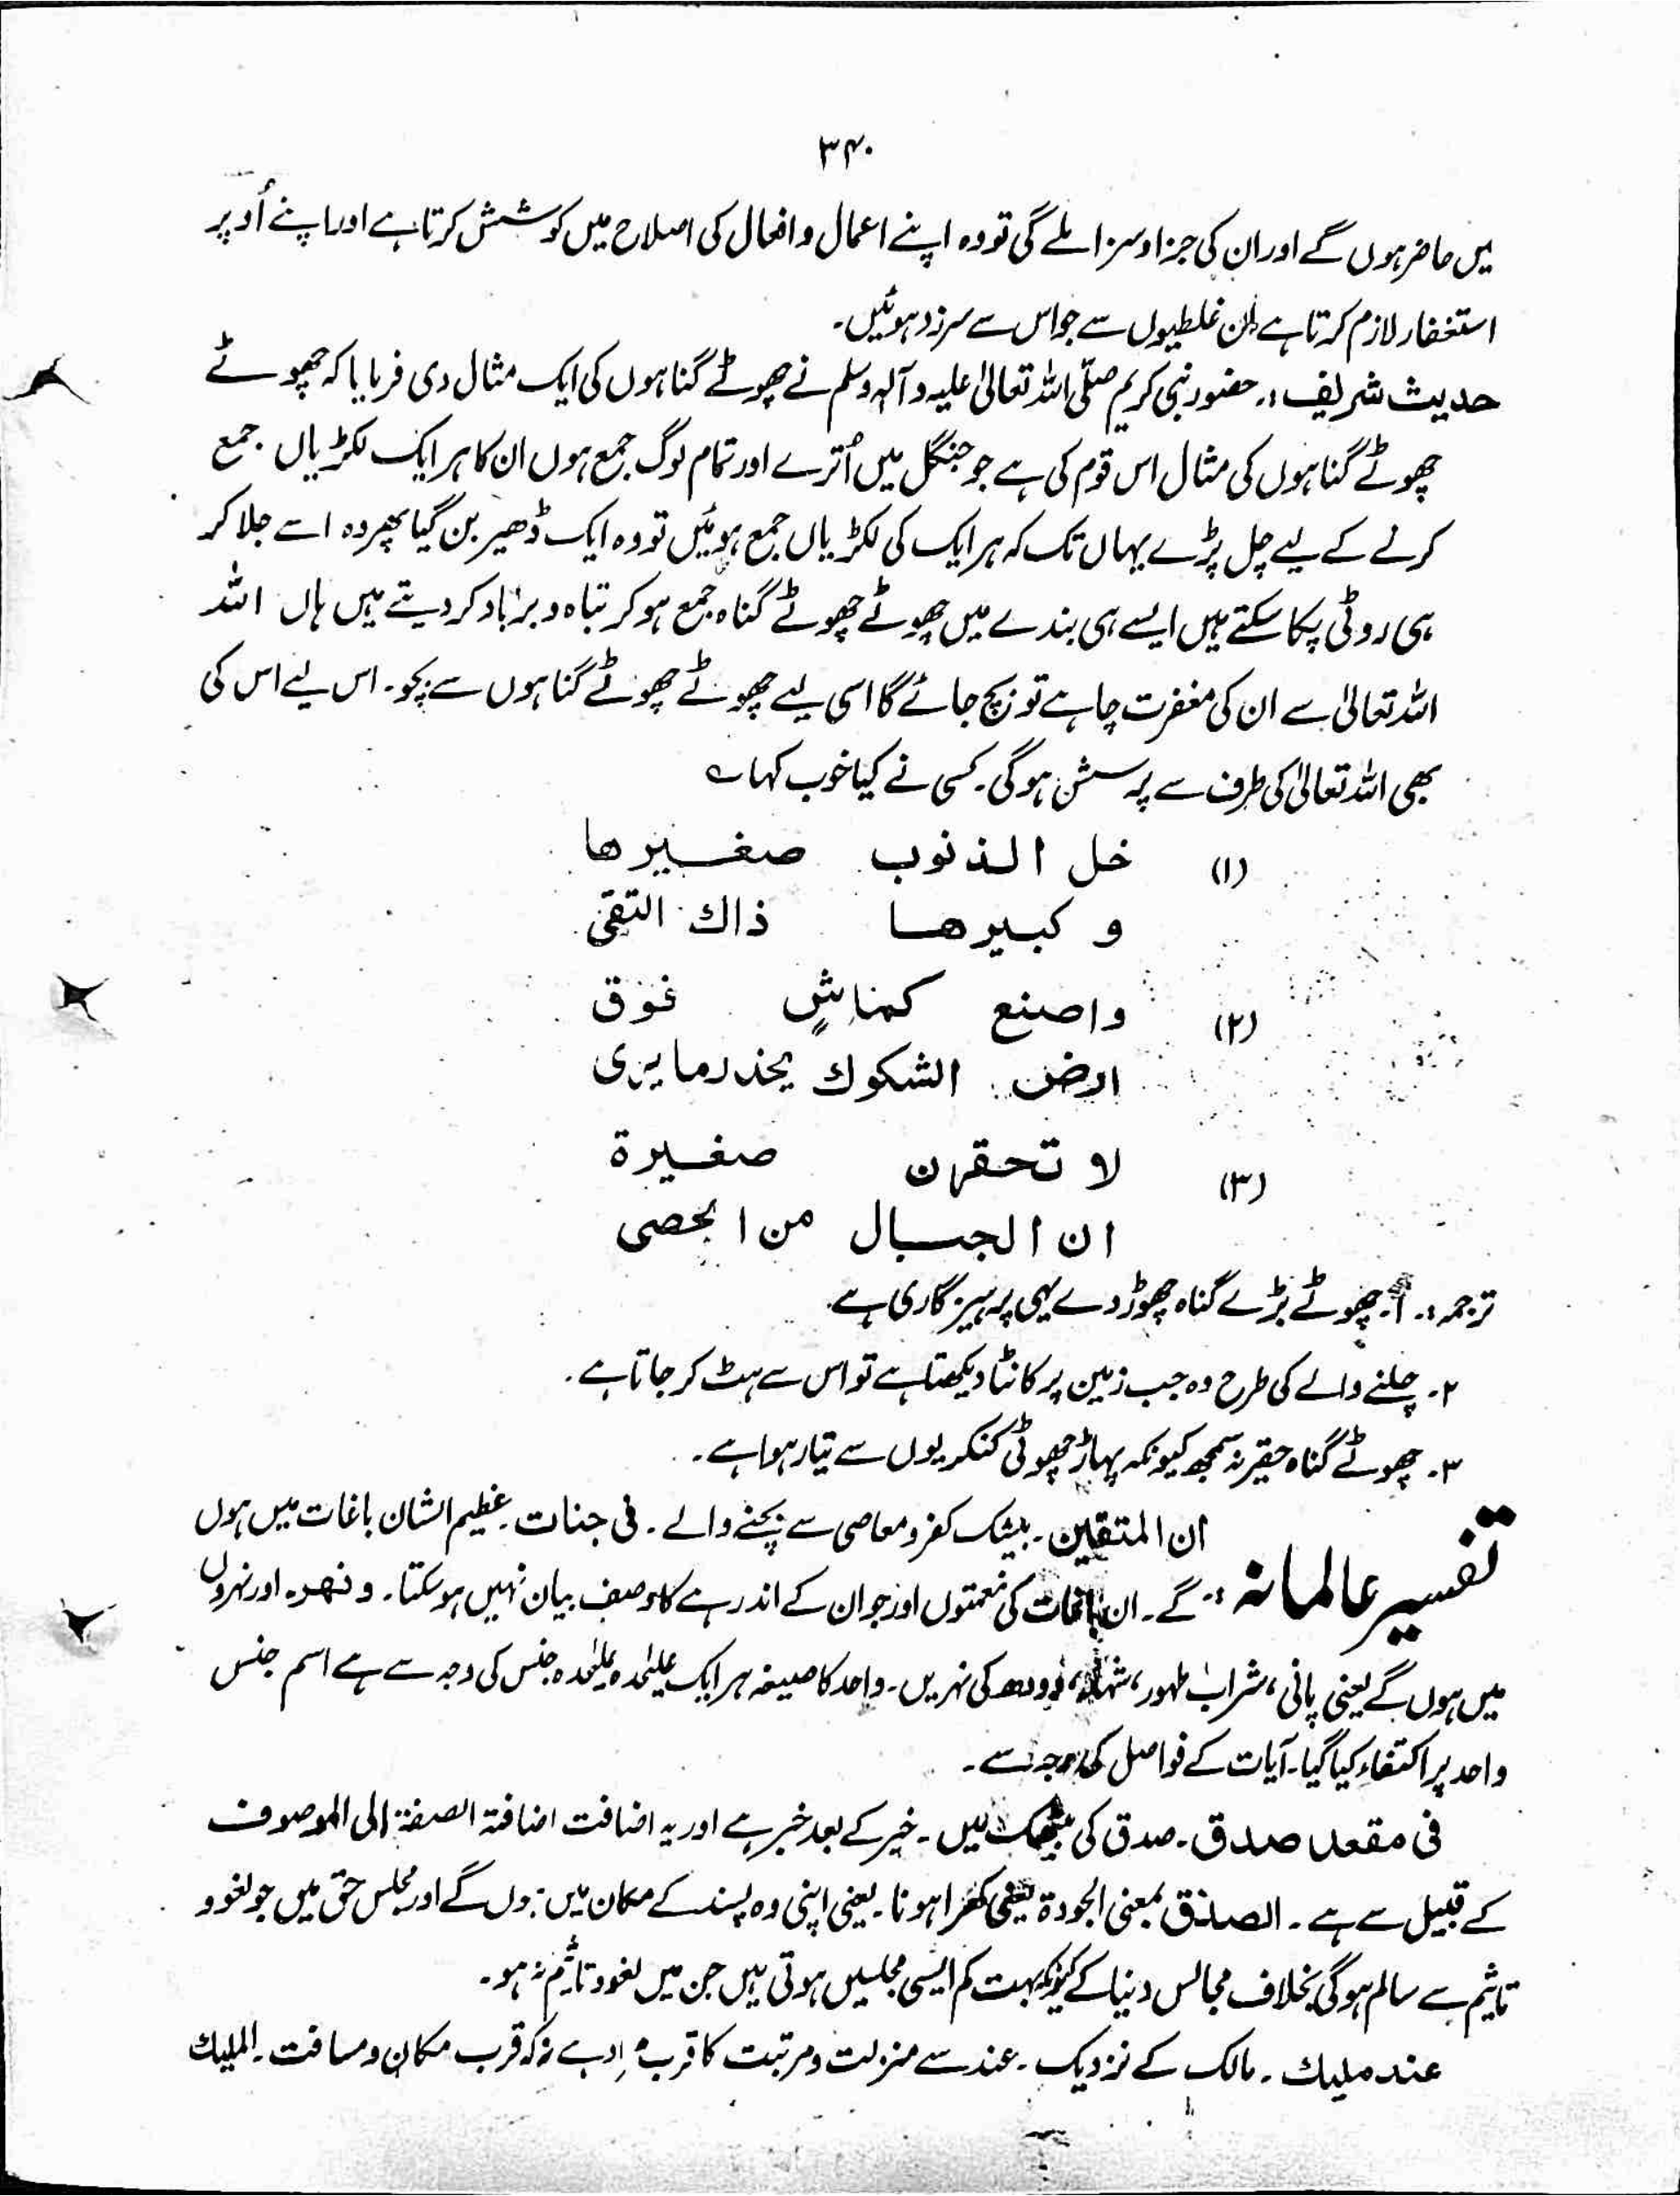 ۳۴۰
میں حاضر ہوں گے اور ان کی جزا و سزا ملے گی تو وہ اپنے اعمال و افعال کی اصلاح میں کوشش کرتا ہے اور اپنے اُوپر
استغفار لازم کرتا ہے ان غلطیوں سے جو اس سے سرزد ہوئیں۔
حدیث شریف :۔ حضور نبی کریم صلّی اللہ تعالیٰ علیہ وآلہ وسلم نے چھوٹے گناہوں کی ایک مثال دی فرمایا کہ چھوٹے
چھوٹے گناہوں کی مثال اس قوم کی ہے جو جنگل میں اُترے اور تمام لوگ جمع ہوں ان کا ہر ایک لکڑیاں جمع
کرنے کے لیے چل پڑے یہاں تک کہ ہر ایک کی لکڑیاں جمع ہوئیں تو وہ ایک ڈھیر بن گیا پھر وہ اسے جلا کر
ہی روٹی پکا سکتے ہیں ایسے ہی بندے میں چھوٹے چھوٹے گناہ جمع ہو کر تباہ و برباد کر دیتے ہیں ہاں اللہ
اللہ تعالیٰ سے ان کی مغفرت چاہے تو بچ جائے گا اسی لیے چھوٹے چھوٹے گناہوں سے بچو۔ اس لیے اس کی
بھی اللہ تعالیٰ کی طرف سے پرسش ہوگی۔ کسی نے کیا خوب کہا ؎
(۱) خل الذنوب صغیرها
و کبیرها ذاك التقی
(۲) واصنع کماشٍ فوق
ارض الشکوك یحذر ما یری
(۳) لا تحقرن صغیرة
ان الجبال من الحصی
ترجمہ :۔ ۱۔ چھوٹے بڑے گناہ چھوڑ دے یہی پرہیزگاری ہے۔
۲۔ چلنے والے کی طرح وہ جب زمین پر کانٹا دیکھتا ہے تو اس سے ہٹ کر جاتا ہے۔
۳۔ چھوٹے گناہ حقیر نہ سمجھ کیونکہ پہاڑ چھوٹی کنکریوں سے تیار ہوا ہے۔
ان المتقین۔ بیشک کفر و معاصی سے بچنے والے۔ فی جنات۔ عظیم الشان باغات میں ہوں
تفسیر عالمانہ :۔ گے۔ ان باغات کی نعمتوں اور جو ان کے اندر ہے کا وصف بیان نہیں ہو سکتا۔ ونھر۔ اور نہروں
میں ہوں گے یعنی پانی، شراب طہور، شہد، دودھ کی نہریں۔ واحد کا صیغہ ہر ایک علیٰحدہ علیٰحدہ جنس کی وجہ سے ہے اسم جنس
واحد پر اکتفاء کیا گیا۔ آیات کے فواصل کی وجہ سے۔
فی مقعد صدق۔ صدق کی بیٹھک میں۔ خبر کے بعد خبر ہے اور یہ اضافت اضافۃ الصفۃ الی الموصوف
کے قبیل سے ہے۔ الصدق بمعنی الجودۃ یعنی کھرا ہونا۔ یعنی اپنی وہ پسند کے مکان میں ہوں گے اور مجلس حق میں جو لغو و
تاثیم سے سالم ہوگی بخلاف مجالس دنیا کے کیونکہ بہت کم ایسی مجلسیں ہوتی ہیں جن میں لغو و تاثیم نہ ہو۔
عند ملیك۔ مالک کے نزدیک۔ عند سے منزلت و مرتبت کا قرب مراد ہے نہ کہ قرب مکان و مسافت۔ الملیك